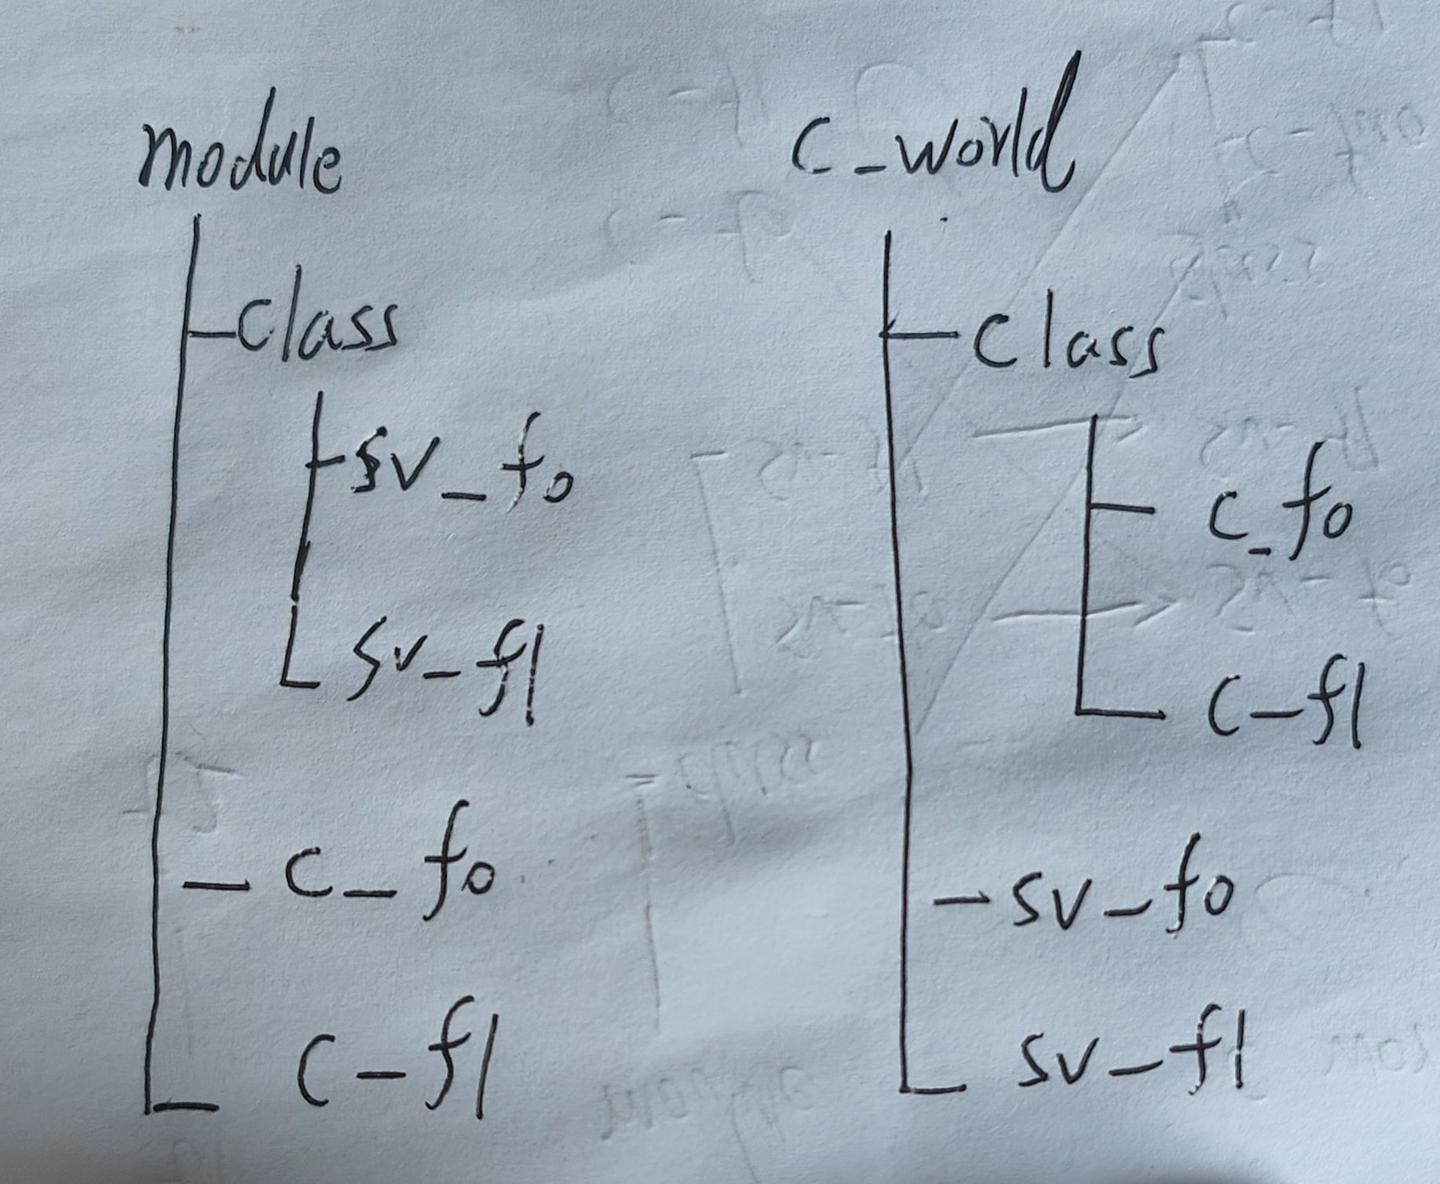 module
class
sv_fo
sv_f1
c_fo
c_f1
c_world
class
c_fo
c_f1
sv_fo
sv_f1